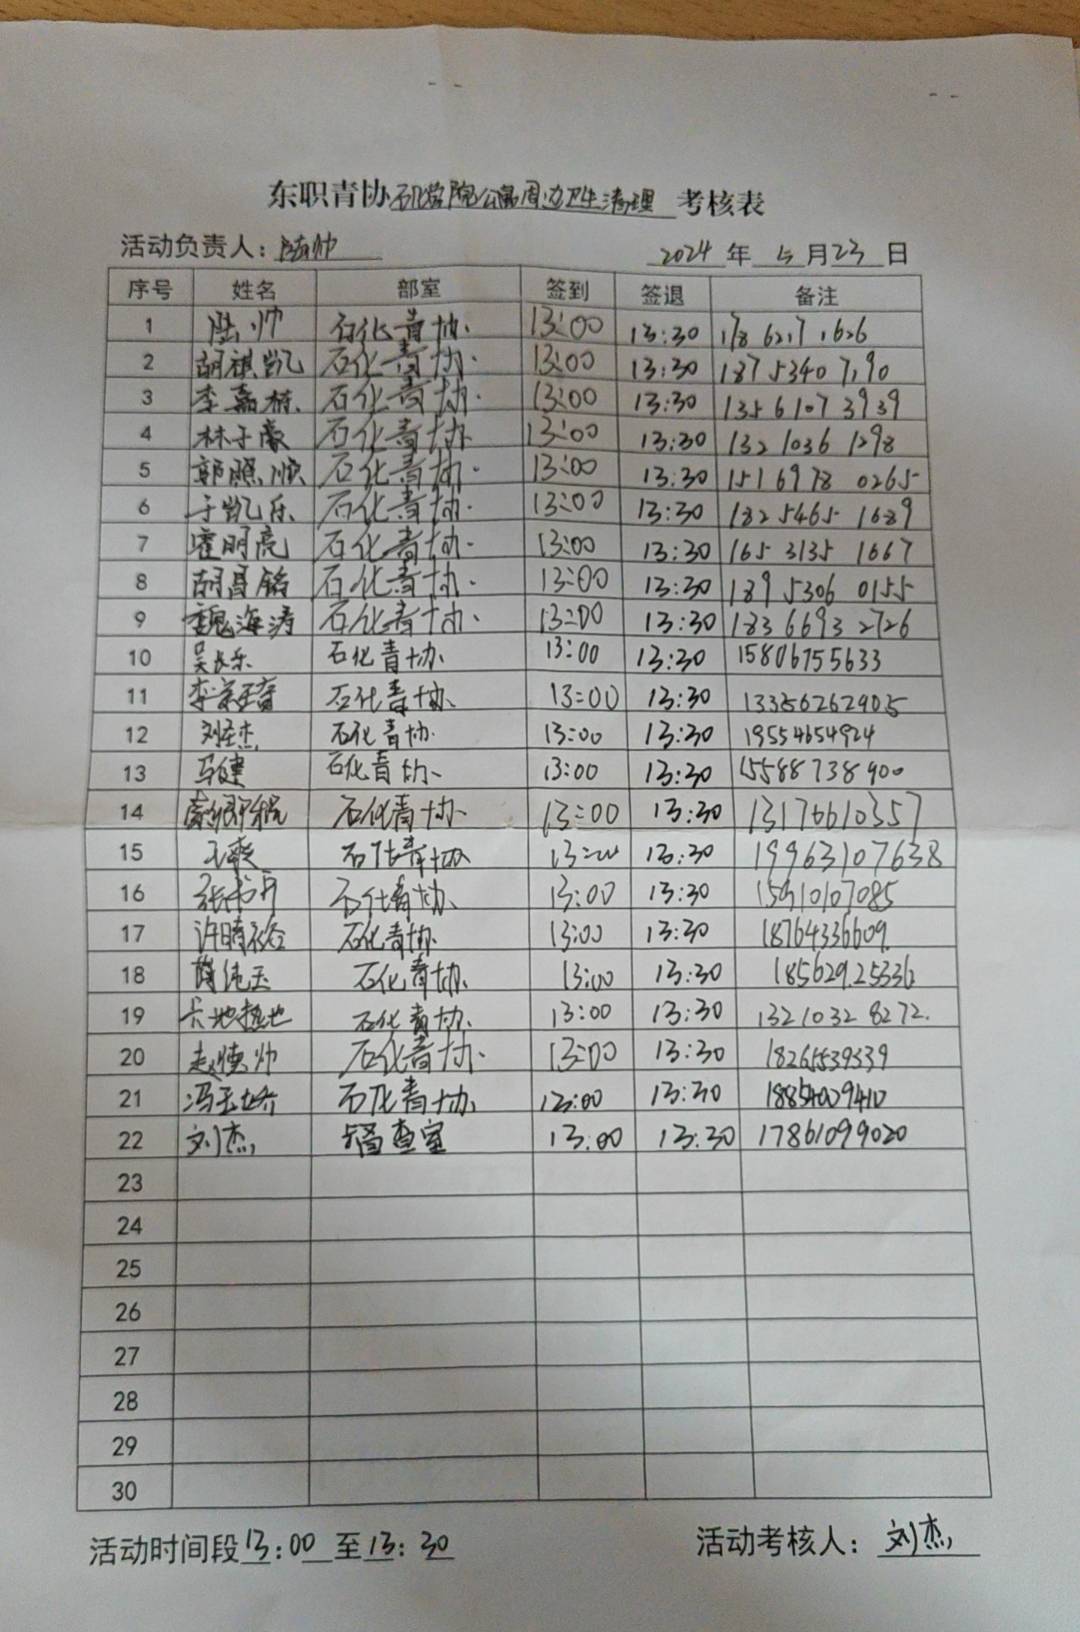 东职青协石化学院公寓周边卫生清理考核表
活动负责人：陆帅 2024年5月23日
序号 姓名 部室 签到 签退 备注
1 陆帅 石化青协 13:00 13:30 178 6217 1626
2 胡祺凯 石化青协 13:00 13:30 187 5340 7190
3 李嘉林 石化青协 13:00 13:30 135 6107 3939
4 林子豪 石化青协 13:00 13:30 132 1036 1298
5 郭照顺 石化青协 13:00 13:30 151 6978 0265
6 于凯乐 石化青协 13:00 13:30 182 5465 1689
7 霍明亮 石化青协 13:00 13:30 165 3135 1667
8 胡昌铭 石化青协 13:00 13:30 189 5306 0155
9 魏海涛 石化青协 13:00 13:30 183 6693 2726
10 吴长乐 石化青协 13:00 13:30 15806755633
11 石化青协 13:00 13:30
12 石化青协 13:00 13:30 19554654924
13 马健 石化青协 13:00 13:30 15588738900
14 石化青协 13:00 13:30 13176610357
15 王爽 石化青协 13:30 19963107638
16 石化青协 13:00 13:30
17 石化青协 13:00 13:30 18764336609
18 石化青协 13:00 13:30 18562925336
19 石化青协 13:00 13:30 1321032 8272
20 赵德帅 石化青协 13:00 13:30
21 石化青协 13:00 13:30 18854009410
22 刘杰 督查室 13:00 13:30 17861099020
23
24
25
26
27
28
29
30
活动时间段13:00至13:30 活动考核人：刘杰